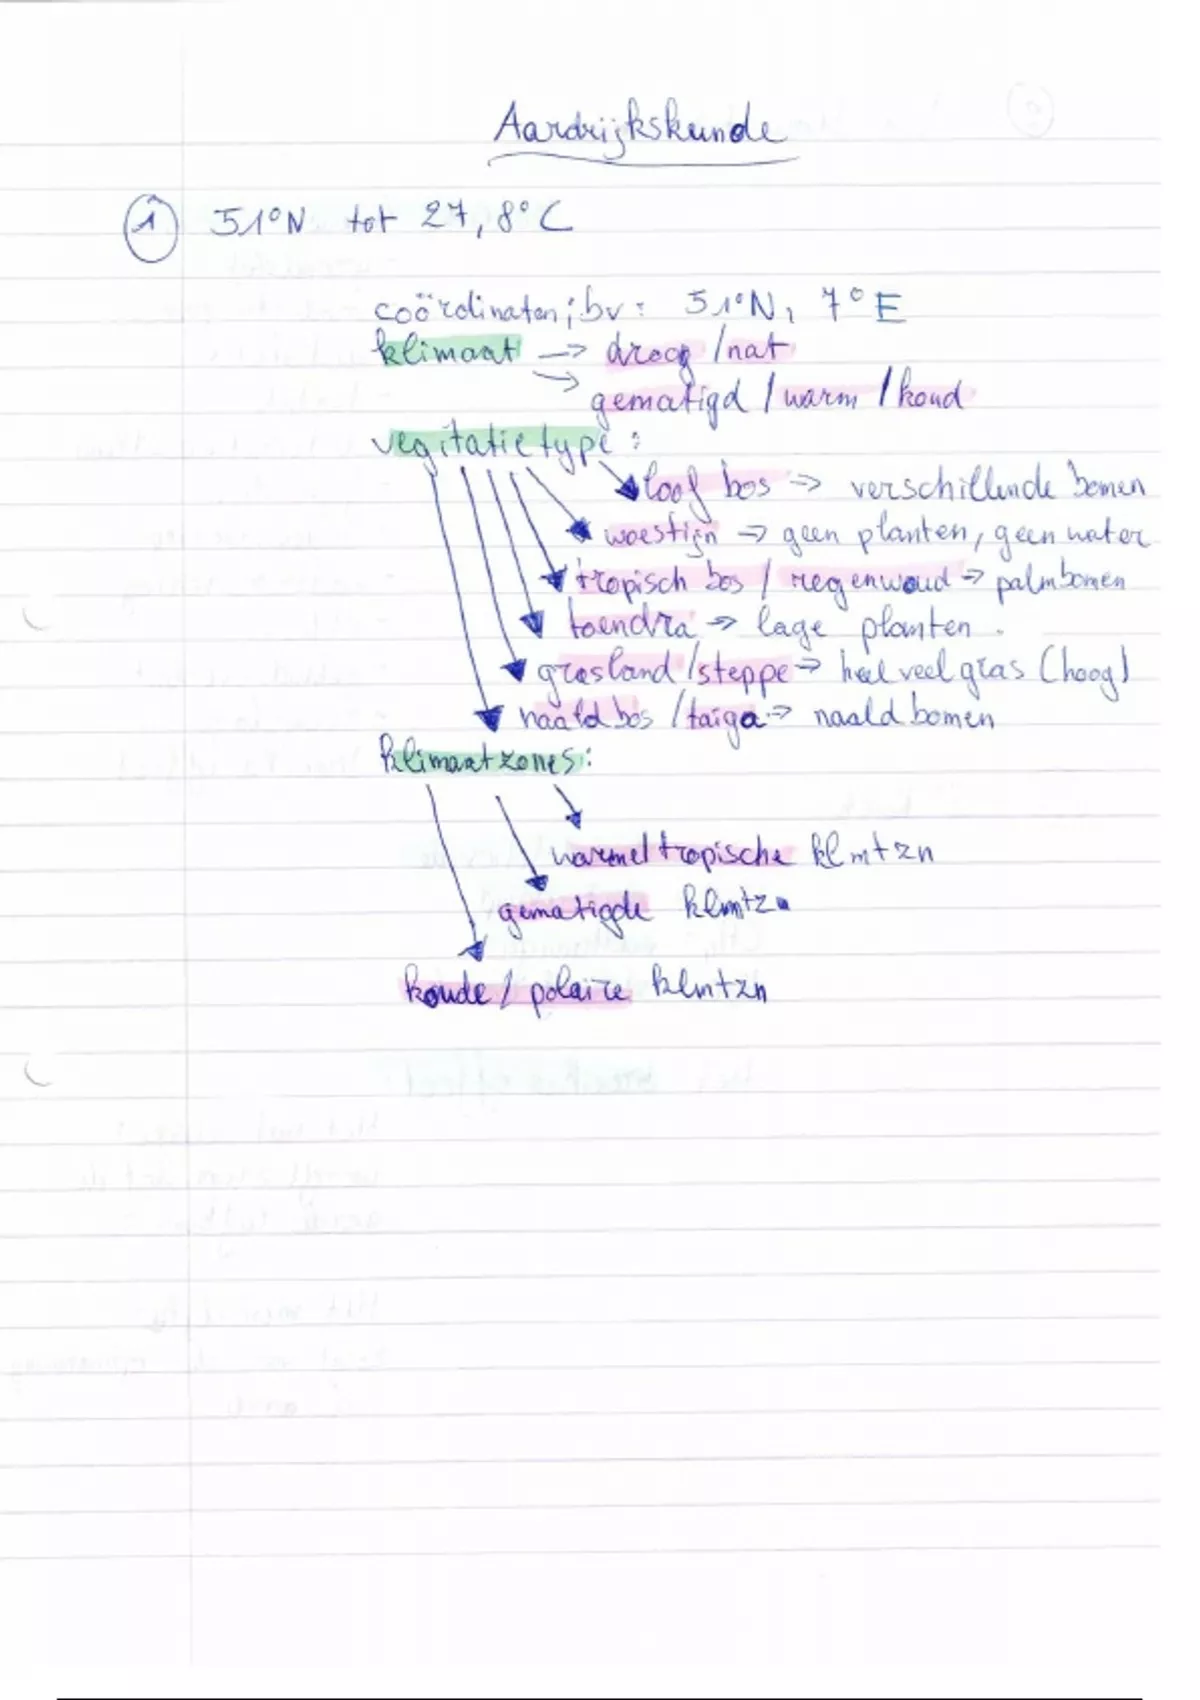 Aardrijkskunde
1 51°N tot 27,8°C
coördinaten; bv: 51°N, 7°E
klimaat → droog / nat
→ gematigd / warm / koud
vegitatietype:
loof bos => verschillende bomen
woestijn => geen planten, geen water
tropisch bos / regenwoud => palmbomen
toendra => lage planten.
grasland / steppe => heel veel gras (hoog)
naald bos / taiga => naald bomen
klimaatzones:
warme/tropische klmtzn
gematigde klmtzn
koude / polaire klmtzn